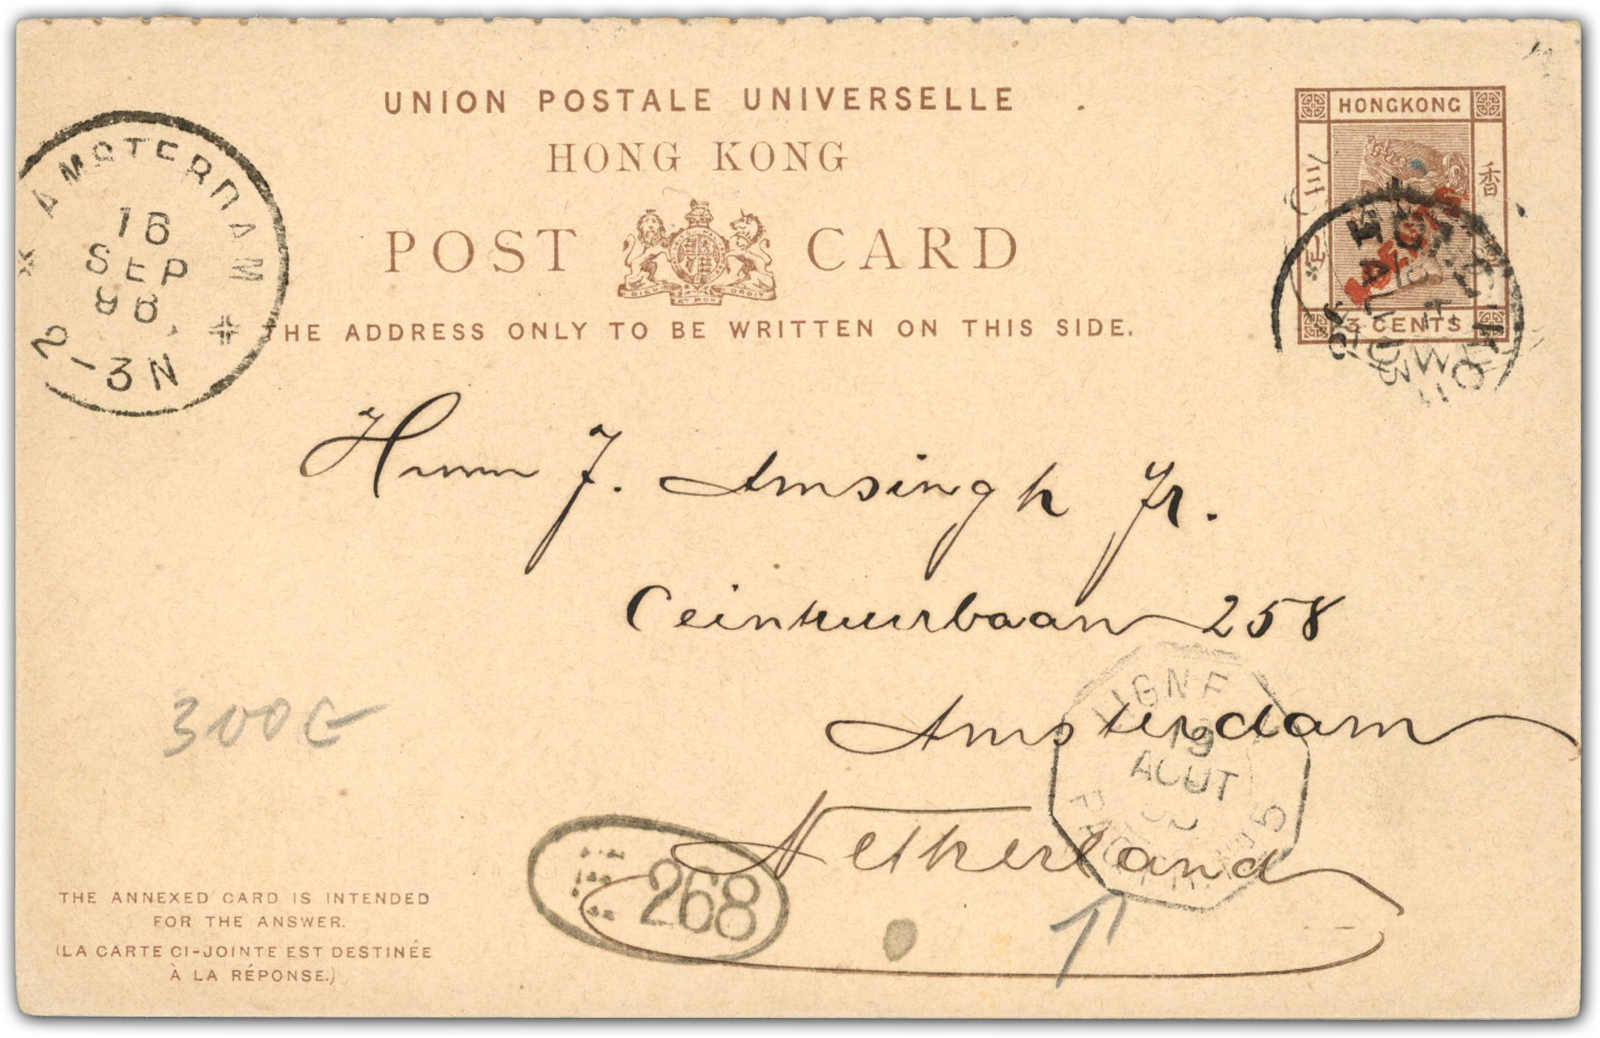 UNION POSTALE UNIVERSELLE
HONG KONG
POST CARD
THE ADDRESS ONLY TO BE WRITTEN ON THIS SIDE.
HONGKONG
香
3 CENTS
AMSTERDAM
16
SEP
2-3N
J. Amsingh Jr.
Ceintuurbaan 258
Amsterdam
Netherland
LIGNE
19
AOUT
268
300€
THE ANNEXED CARD IS INTENDED
FOR THE ANSWER.
(LA CARTE CI-JOINTE EST DESTINÉE
À LA RÉPONSE.)